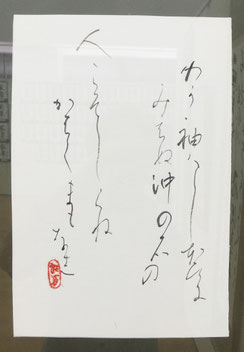 わか袖はしほひに
みえぬ沖の石の
人こそしらね
かわくまもなし